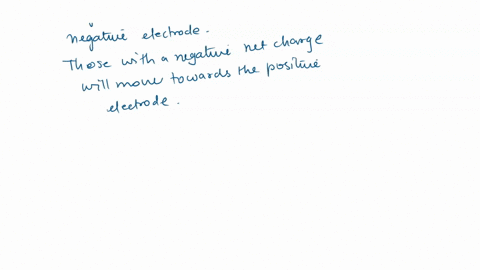 negative electrode.
Those with a negative net charge
will move towards the positive
electrode.